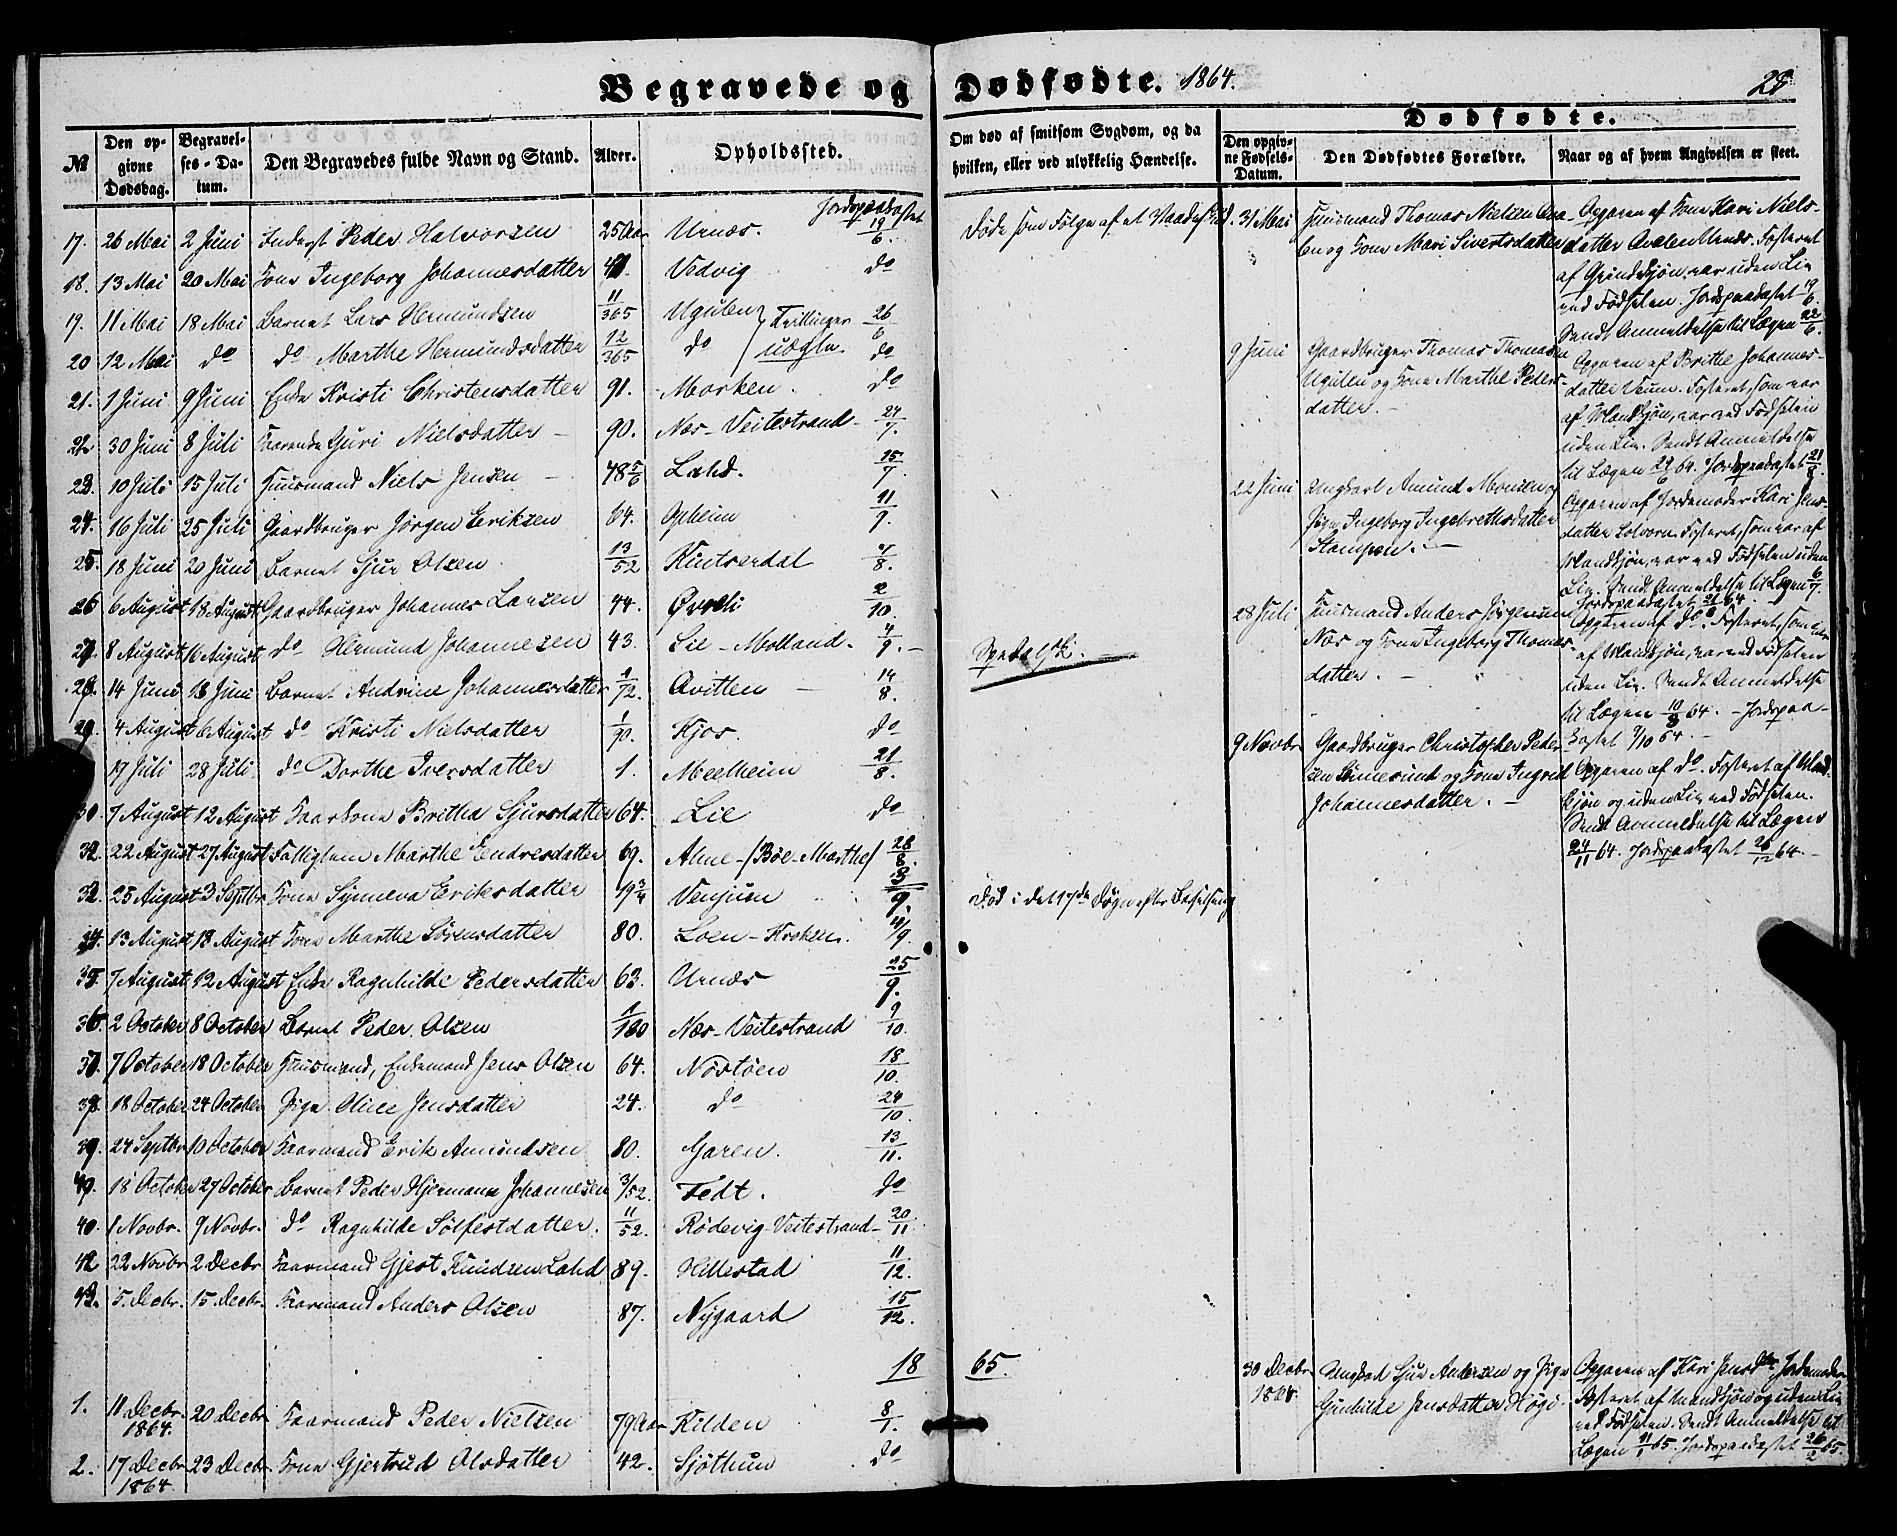 Begravede og Dødfødte. 1864.
28
№
Den opgivne Dødsdag.
Begravelses-Datum.
Den Begravedes fulde Navn og Stand.
Alder.
Opholdssted.
Om død af smitsom Sygdom, og da hvilken, eller ved ulykkelig Hændelse.
Dødfødte.
Den opgivne Fødsels-Datum.
Den Dødfødtes Forældre.
Naar og af hvem Angivelsen er skeet.
Jordspaakastet
17. 26 Mai 2 Juni Inderst Peder Halvorsen 25 Aar Urnæs. 19/6. Døde som Følge af et Vaadeskud.
18. 13 Mai 20 Mai Kone Ingeborg Johannesdatter Vedvig do
19. 11 Mai 18 Mai Barnet Lars Hermundsen 11/365 Ugulen Tvillinger 26/6
20 12 Mai do do Marthe Hermundsdatter 12/365 do uægte. do
21. 1 Juni 9 Juni Enke Kristi Christensdatter 91. Morken. do
22 30 Juni 8 Juli Kaarenke Guri Nielsdatter 90. Næs-Veitestrand 24/7.
23. 10 Juli 15 Juli Huusmand Niels Jensen 48 5/6 Lahd. 15/7.
24. 16 Juli 25 Juli Gaardbruger Jørgen Eriksen 64. Opheim 11/7.
25. 18 Juni 20 Juni Barnet Sjur Olsen 13/52 Kinserdal 7/8.
26 6 August 18 August Gaardbruger Johannes Larsen 44. Øvreli 2/10.
27. 8 August 16 August do Hermund Johannesen 43. Lie-Molland. 4/9. Spedalsk.
28. 14 Juni 18 Juni Barnet Andrine Johannesdatter 1/72. Qvitten 14/8.
29. 4 August 6 August do Kristi Nielsdatter 1/90. Kjos do
19 Juli 28 Juli do Dorthe Iversdatter 1. Meelheim 21/8.
30. 7 August 12 August Kaarkone Britha Sjursdatter 64. Lie do
32. 22 August 27 August Fattiglem Marthe Endresdatter 69. Alme-/Bøe-Marthe/ 28/8.
32. 25 August 3 Septbr Kone Synneva Eriksdatter 19 3/4 Venjum 8/9. Død i det 17de Døgn efter Barselseng
34. 13 August 18 August Kone Marthe Sørensdatter 80. Loen-Kroken. 4/9
35. 7 August 12 August Enke Ragnhilde Pedersdatter 63. Urnæs 25/9.
36. 2 October 8 October Barnet Peder Olsen Næs-Veitestrand 9/10.
37. 7 October 18 October Huusmand, Enkemand Jens Olsen 64. Nøstøen 18/10.
38. 18 October 24 October Pige Oline Jensdatter 24. do 24/10
39. 24 Septbr 10 October Kaarmand Erik Amundsen 80. Garen. 13/11.
40. 18 October 27 October Barnet Peder Hjermann Johannesen 3/52. Fedt. do
40. 1 Novbr. 9 Novbr. do Ragnhilde Solfestdatter. 11/52. Rødevig-Veitestrand- 20/11
42 22 Novbr 2 Decbr Kaarmand Gjest Knudsen Lahd 89. Hillestad 11/12.
43. 5. Decbr. 15 Decbr. Kaarmand Anders Olsen 87. Nygaard 15/12.
18 65.
1. 11 Decbr. 1864. 20 Decbr Kaarmand Peder Nielsen 79 Aar Kilden 8/1.
2. 17 Decbr 1864 23 Decbr. Kone Gjertrud Olsdatter 42. Sjøthun do
31 Mai Huusmand Thomas Nielsen
og Kone Mari Sivertsdatter
Opgaven af Kone Kari Niels-
datter Fosteret
af Qvindekjøn, var uden Liv
ved Fødselen. Jordspaakastet 19/6.
Sendt Anmeldelse til Lægen 22/6.
9 Juni Gaardbruger Thomas Thomasen
Ugulen og Kone Marthe Peders-
datter.
Opgaven af Brithe Johannes-
datter Fosteret, som var
af Mandkjøn, var ved Fødselen
uden Liv. Sendt Anmeldelse
til Lægen 64. Jordspaakastet 21/8.
22 Juni Ungkarl Amund Monsen og
Pige Ingeborg Ingebrethsdatter
Stampen.
Opgaven af Jordemoder Kari Jens-
datter Solvorn. Fosteret, som var af
Mandkjøn, var ved Fødselen uden
Liv. Sendt Anmeldelse til Lægen 6/7.
Jordspaakastet 21/8 64.
28 Juli Huusmand Anders Jørgensen
Næs og Kone Ingeborg Thomas-
datter.
Opgaven af do. Fosteret, som var
af Mandkjøn, var ved Fødselen
uden Liv. Sendt Anmeldelse
til Lægen 10/8 64. - Jordspaa-
kastet 9/10 64.
9 Novbr Gaardbruger Christopher Peder-
sen og Kone Ingrid
Johannesdatter.
Opgaven af do. Fosteret af Mand-
kjøn og uden Liv ved Fødselen.
Sendt Anmeldelse til Lægen
24/11 64. Jordspaakastet 26/12 64.
30 Decbr 1864. Ungkarl Sjur Andersen og Pige
Gunhilde Jensdatter Høgi
Opgaven af Kari Jensdtr Jordemoder
Fosteret af Mandkjøn og uden Liv
ved Fødselen. Sendt Anmeldelse til
Lægen 11/1 65. Jordspaakastet 26/2 65.